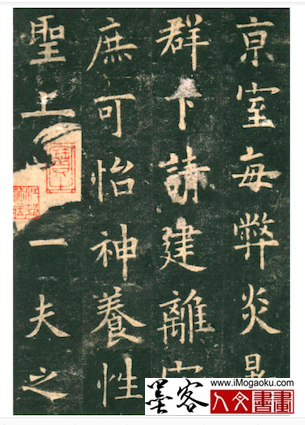 京室每弊炎
群下請建離
庶可怡神養性
聖上一夫之
www.iMogaoku.com
墨客
人文書畫